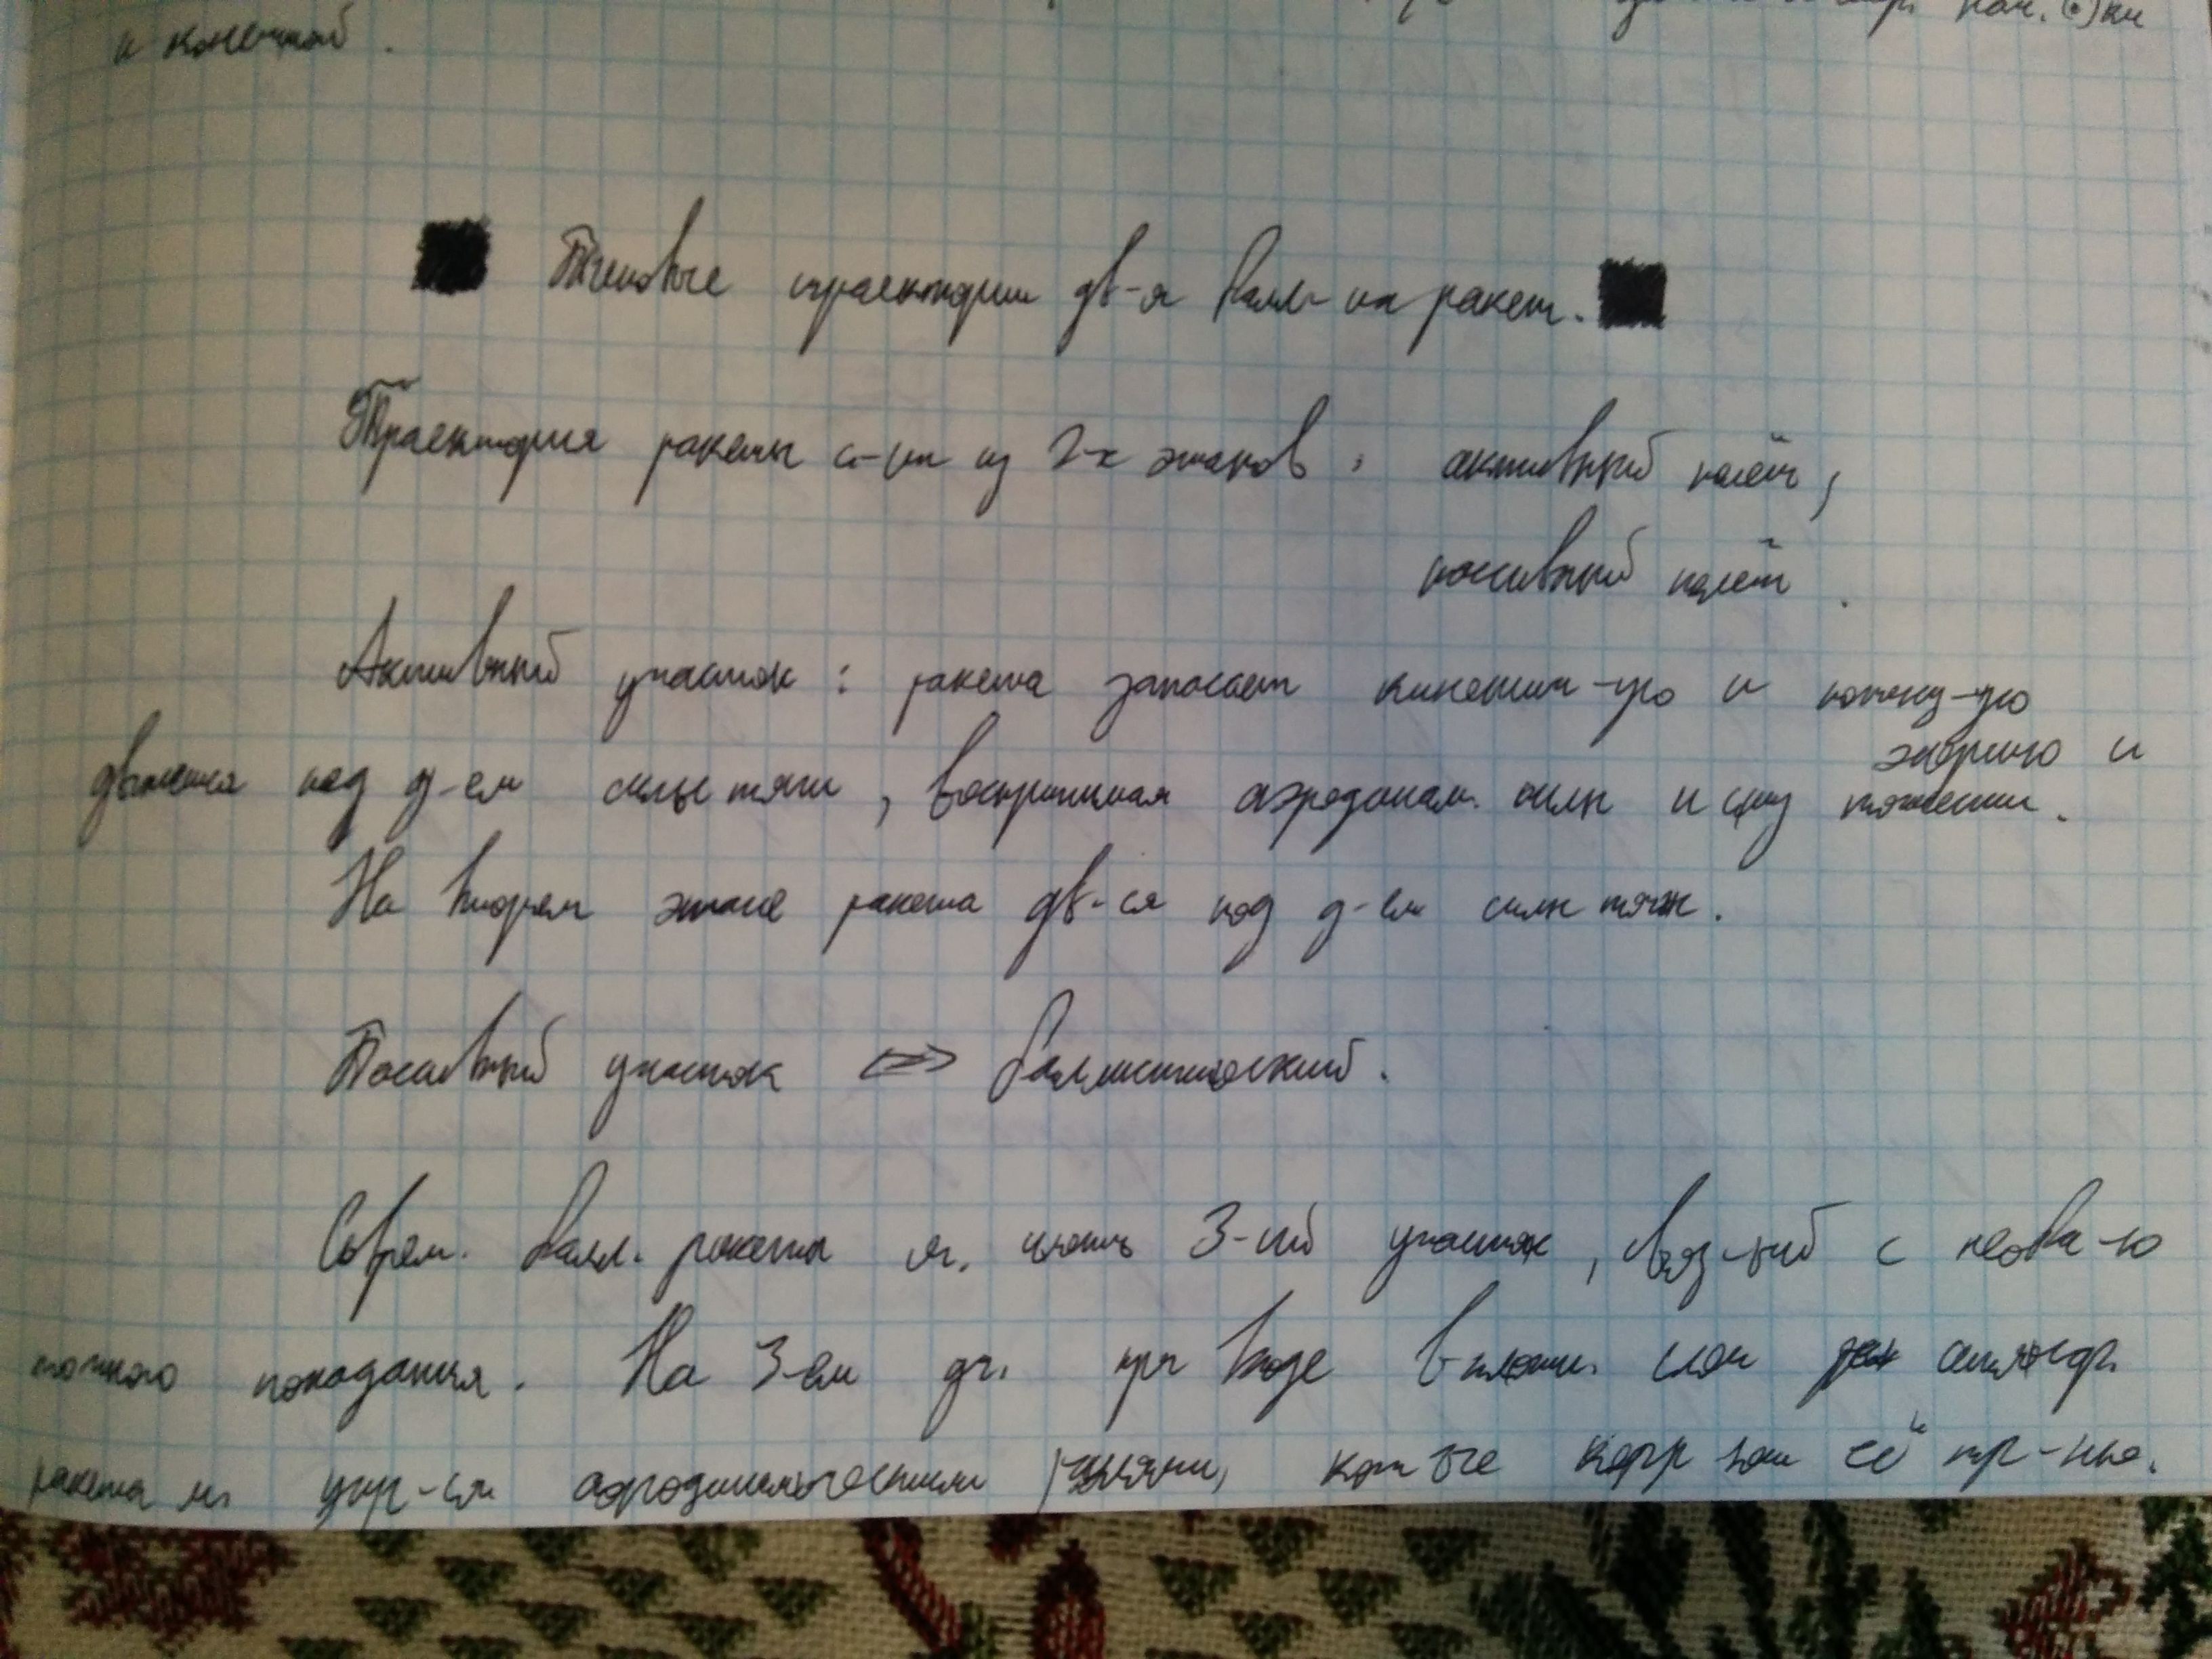 и конечной .
нач. ⊙ки
Типовые траектории дв-я балл-их ракет.
Траектория ракеты с-ит из 2-х этапов : активный полёт,
пассивный полёт .
Активный участок : ракета запасает кинетич-ую и потенц-ую
энергию и
движется под д-ем силы тяги , воспринимая аэродинам. силы и силу тяжести.
На втором этапе ракета дв-ся под д-ем силы тяж.
Пассивный участок <=> баллистический.
Соврем. балл. ракеты м. иметь 3-ий участок , связ-ый с необ-ю
точного попадания . На 3-ем уч. при входе в плотн. слои атмосф.
ракета м. упр-ся аэродинамическими рулями, кот-ые корр её тр-ию.